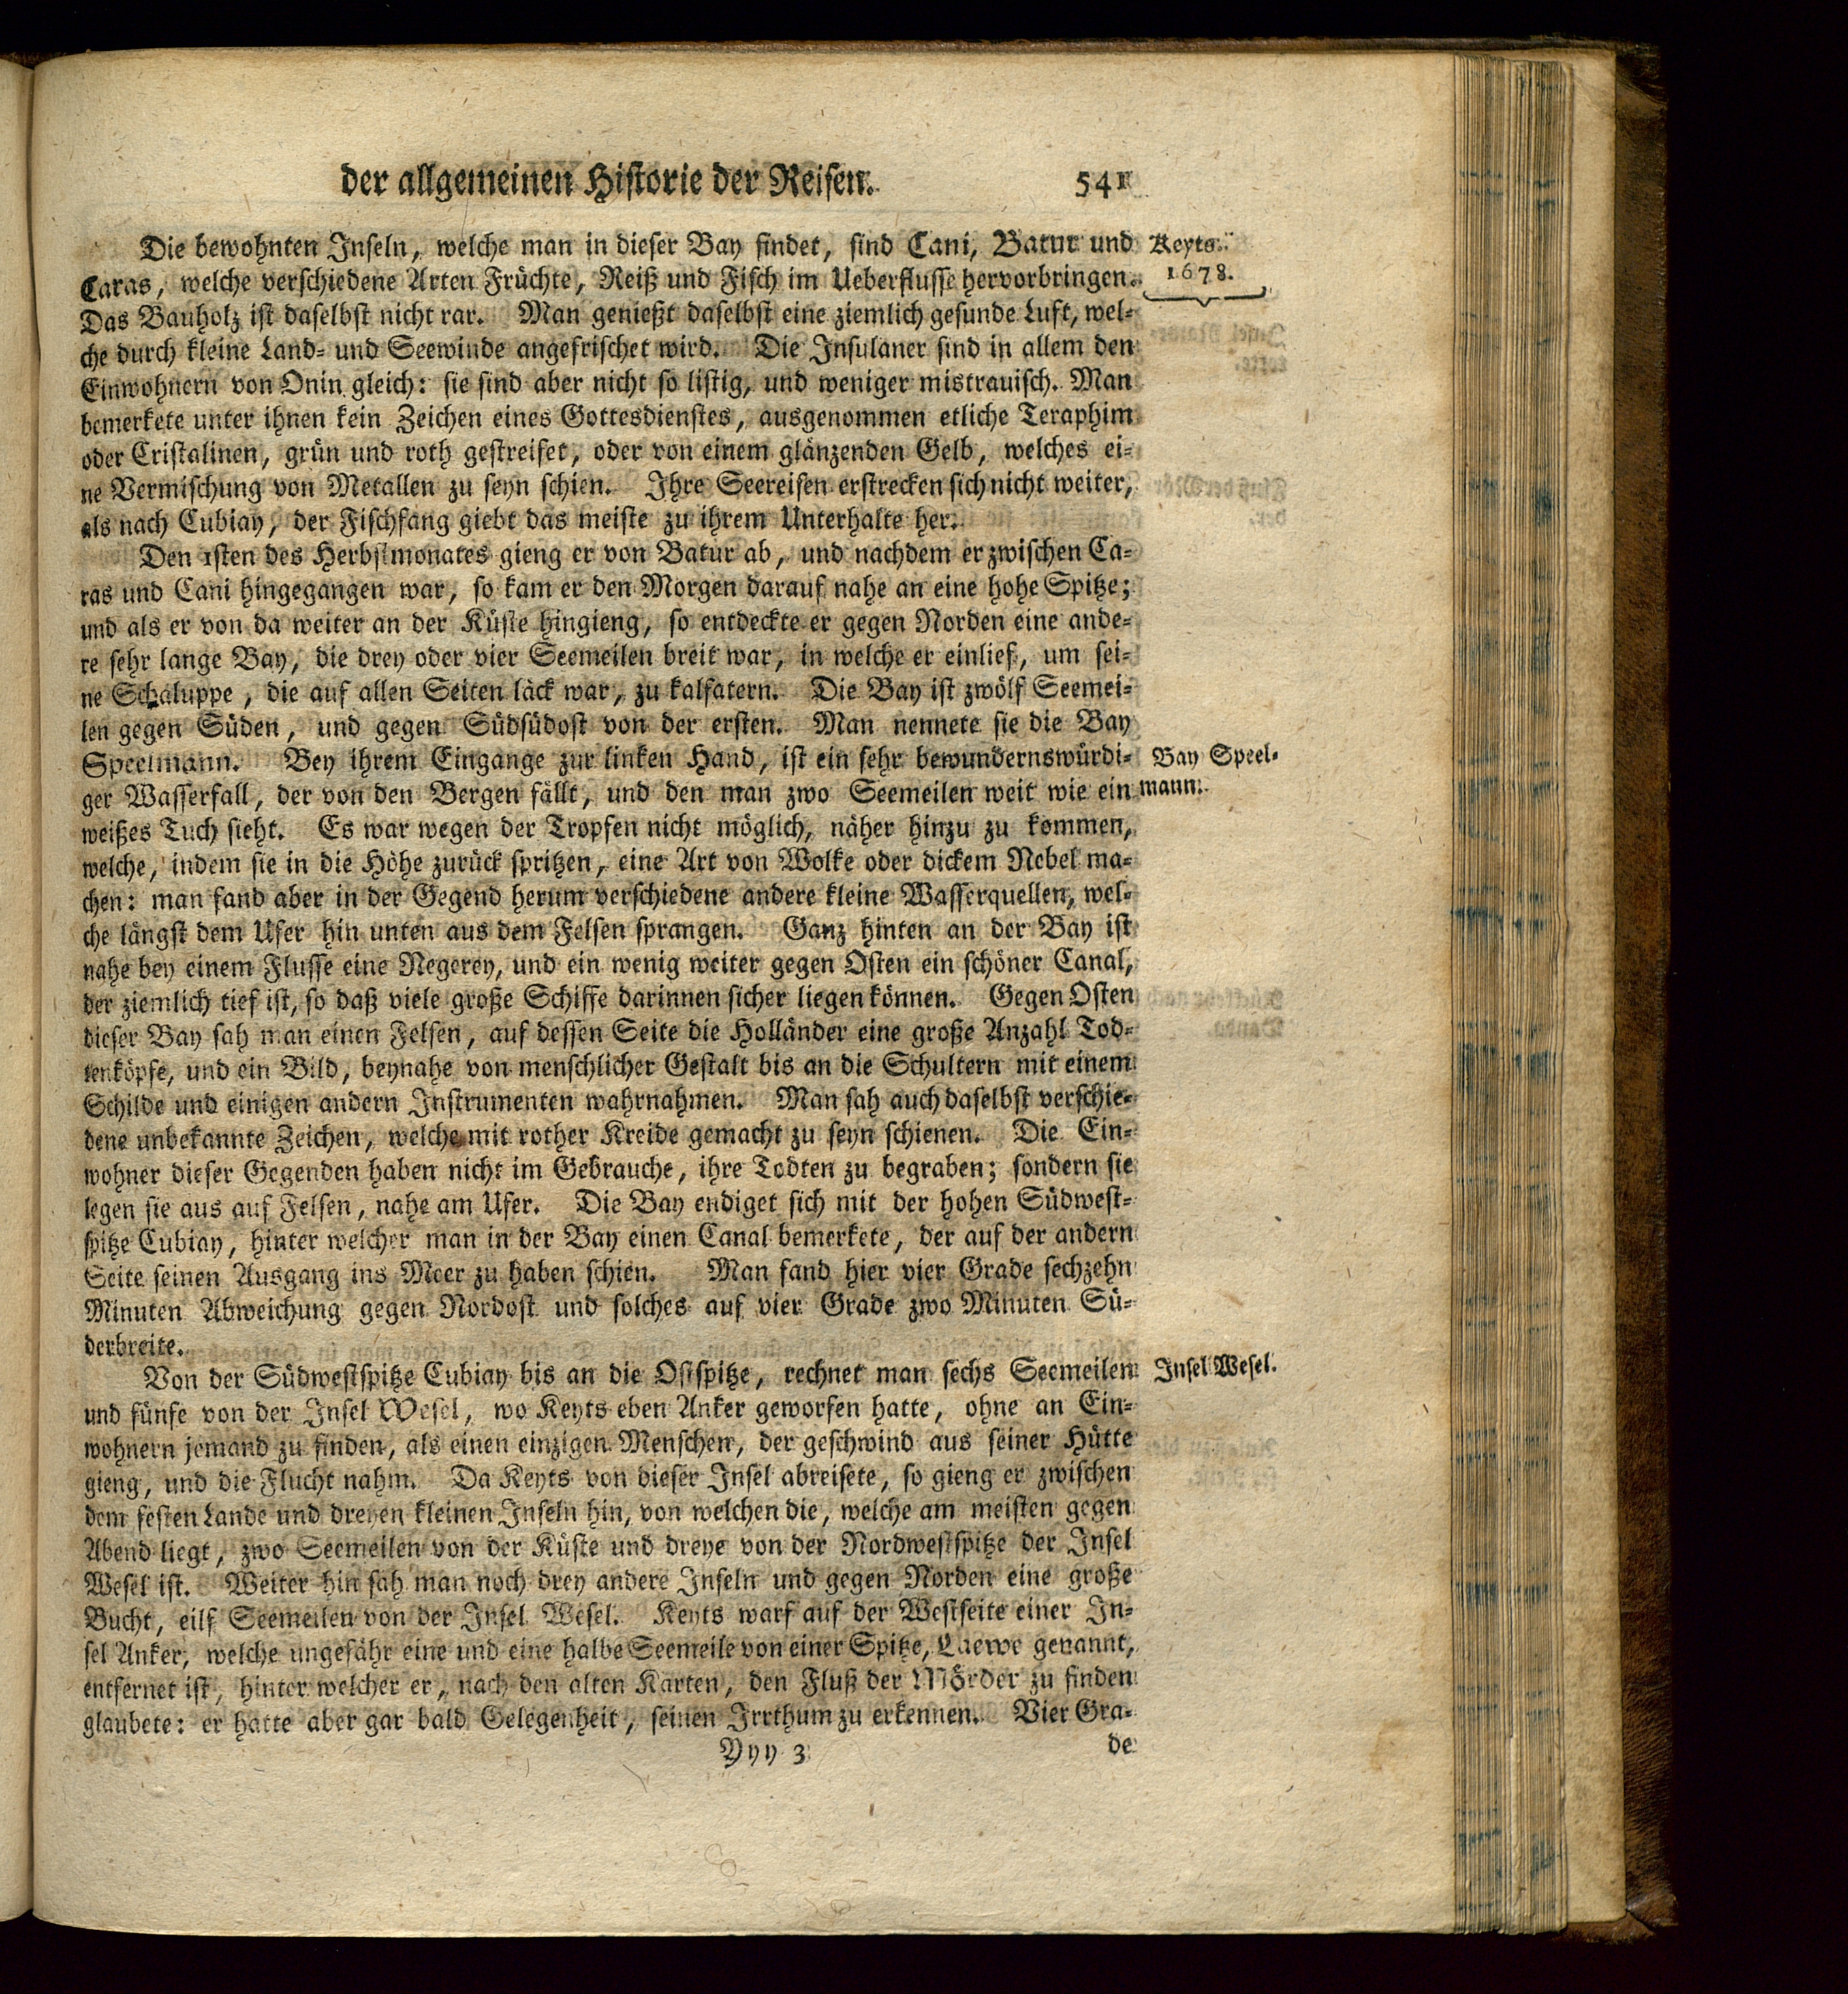 der allgemeinen Historie der Reisen. 541
Die bewohnten Inseln, welche man in dieser Bay findet, sind Cani, Batur und
Keyts.
Caras, welche verschiedene Arten Früchte, Reiß und Fisch im Ueberflusse hervorbringen.
1678.
Das Bauholz ist daselbst nicht rar. Man genießt daselbst eine ziemlich gesunde Luft, wel-
che durch kleine Land- und Seewinde angefrischet wird. Die Insulaner sind in allem den
Einwohnern von Onin gleich: sie sind aber nicht so listig, und weniger mistrauisch. Man
bemerkete unter ihnen kein Zeichen eines Gottesdienstes, ausgenommen etliche Teraphim
oder Cristalinen, grün und roth gestreifet, oder von einem glänzenden Gelb, welches ei-
ne Vermischung von Metallen zu seyn schien. Ihre Seereisen erstrecken sich nicht weiter,
als nach Cubiay, der Fischfang giebt das meiste zu ihrem Unterhalte her.
Den 1sten des Herbstmonates gieng er von Batur ab, und nachdem er zwischen Ca-
ras und Cani hingegangen war, so kam er den Morgen darauf nahe an eine hohe Spitze;
und als er von da weiter an der Küste hingieng, so entdeckte er gegen Norden eine ande-
re sehr lange Bay, die drey oder vier Seemeilen breit war, in welche er einlief, um sei-
ne Schaluppe, die auf allen Seiten läck war, zu kalfatern. Die Bay ist zwölf Seemei-
len gegen Süden, und gegen Südsüdost von der ersten. Man nennete sie die Bay
Speelmann. Bey ihrem Eingange zur linken Hand, ist ein sehr bewundernswürdi-
Bay Speel-
ger Wasserfall, der von den Bergen fällt, und den man zwo Seemeilen weit wie ein
mann.
weißes Tuch sieht. Es war wegen der Tropfen nicht möglich, näher hinzu zu kommen,
welche, indem sie in die Höhe zurück spritzen, eine Art von Wolke oder dickem Nebel ma-
chen: man fand aber in der Gegend herum verschiedene andere kleine Wasserquellen, wel-
che längst dem Ufer hin unten aus dem Felsen sprangen. Ganz hinten an der Bay ist
nahe bey einem Flusse eine Negerey, und ein wenig weiter gegen Osten ein schöner Canal,
der ziemlich tief ist, so daß viele große Schiffe darinnen sicher liegen können. Gegen Osten
dieser Bay sah man einen Felsen, auf dessen Seite die Holländer eine große Anzahl Tod-
tenköpfe, und ein Bild, beynahe von menschlicher Gestalt bis an die Schultern mit einem
Schilde und einigen andern Instrumenten wahrnahmen. Man sah auch daselbst verschie-
dene unbekannte Zeichen, welche mit rother Kreide gemacht zu seyn schienen. Die Ein-
wohner dieser Gegenden haben nicht im Gebrauche, ihre Todten zu begraben; sondern sie
legen sie aus auf Felsen, nahe am Ufer. Die Bay endiget sich mit der hohen Südwest-
spitze Cubiay, hinter welcher man in der Bay einen Canal bemerkete, der auf der andern
Seite seinen Ausgang ins Meer zu haben schien. Man fand hier vier Grade sechzehn
Minuten Abweichung gegen Nordost und solches auf vier Grade zwo Minuten Sü-
derbreite.
Von der Südwestspitze Cubiay bis an die Ostspitze, rechnet man sechs Seemeilen
Insel Wesel.
und fünfe von der Insel Wesel, wo Keyts eben Anker geworfen hatte, ohne an Ein-
wohnern jemand zu finden, als einen einzigen Menschen, der geschwind aus seiner Hütte
gieng, und die Flucht nahm. Da Keyts von dieser Insel abreisete, so gieng er zwischen
dem festen Lande und dreyen kleinen Inseln hin, von welchen die, welche am meisten gegen
Abend liegt, zwo Seemeilen von der Küste und dreye von der Nordwestspitze der Insel
Wesel ist. Weiter hin sah man noch drey andere Inseln und gegen Norden eine große
Bucht, eilf Seemeilen von der Insel Wesel. Keyts warf auf der Westseite einer In-
sel Anker, welche ungefähr eine und eine halbe Seemeile von einer Spitze, Laewe genannt,
entfernet ist, hinter welcher er, nach den alten Karten, den Fluß der Mörder zu finden
glaubete: er hatte aber gar bald Gelegenheit, seinen Irrthum zu erkennen. Vier Gra-
Yyy 3 de